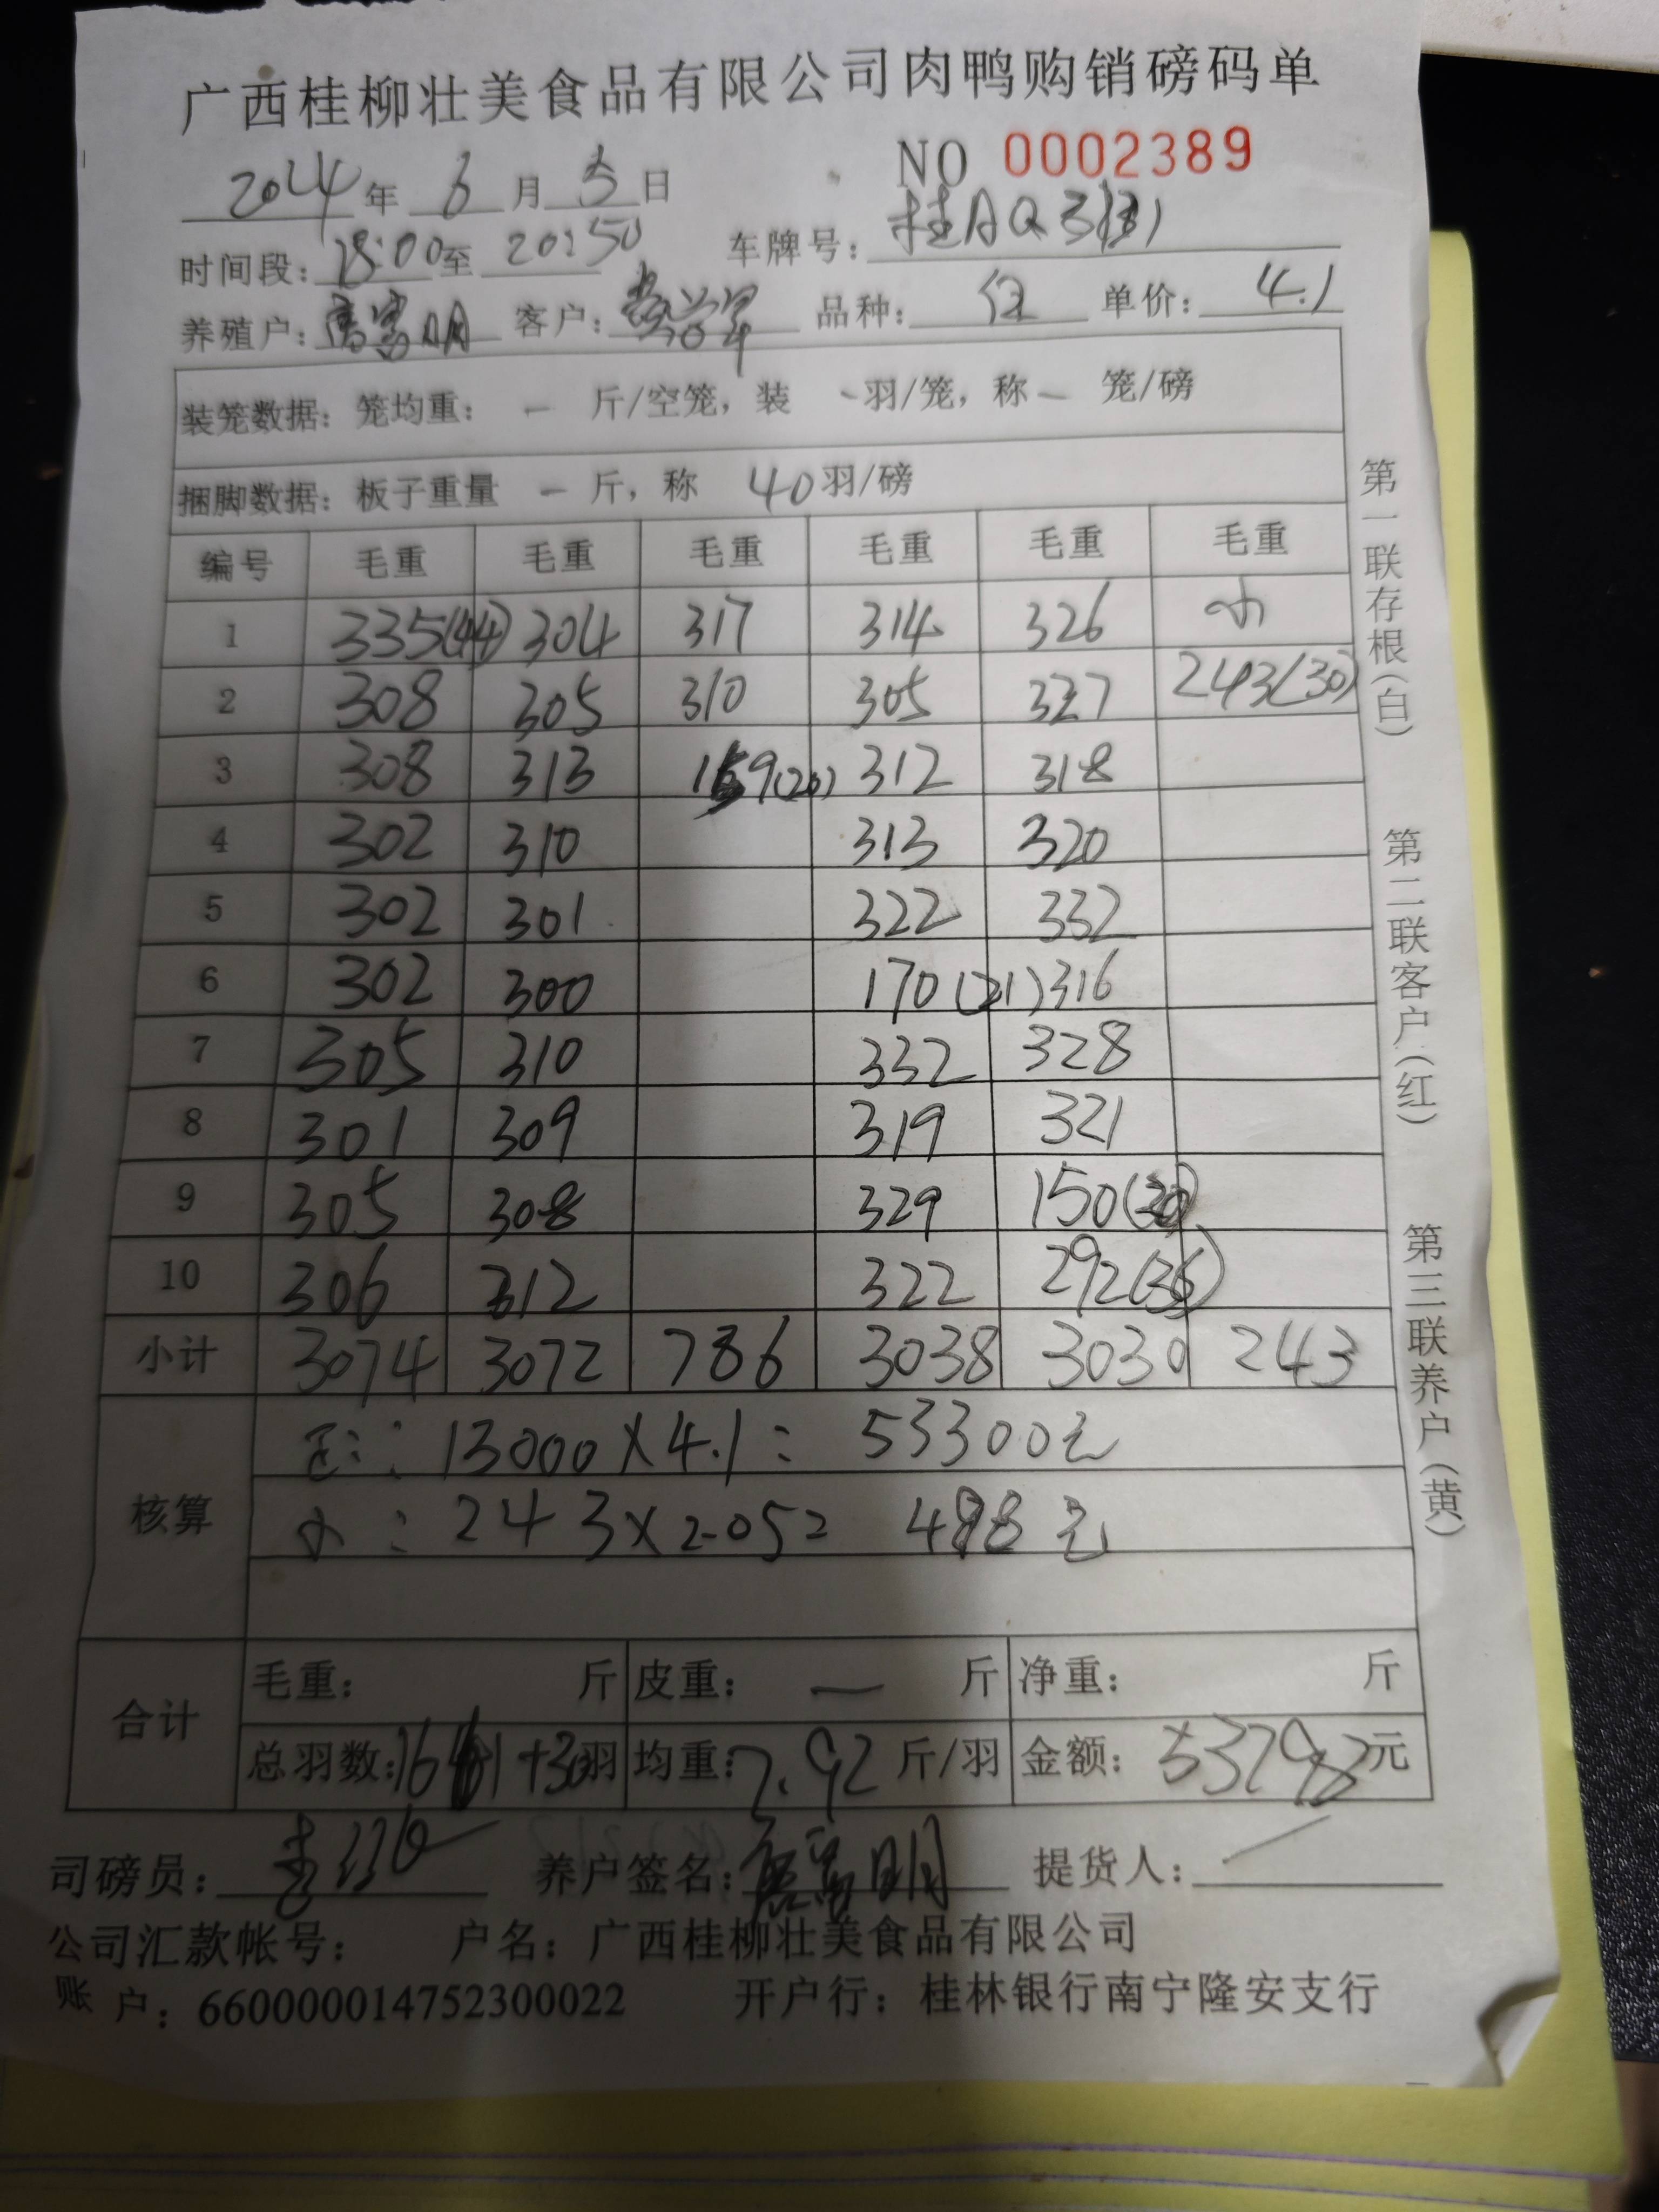 广西桂柳壮美食品有限公司肉鸭购销磅码单
NO 0002389
2024年 6月 5日
时间段: 18:00至 20:50 车牌号: 桂AQ3
养殖户: 明 客户: 品种: 单价: 4.1
装笼数据: 笼均重: - 斤/空笼, 装 -羽/笼, 称- 笼/磅
捆脚数据: 板子重量 - 斤, 称 40羽/磅
编号 毛重 毛重 毛重 毛重 毛重 毛重
1 335(44) 304 317 314 326 小
2 308 305 310 305 327 243(30)
3 308 313 159(20) 312 318
4 302 310 313 320
5 302 301 322 332
6 302 300 170(21) 316
7 305 310 332 328
8 301 309 319 321
9 305 308 329 150
10 306 312 322 292(36)
小计 3074 3072 786 3038 3030 243
核算
正: 13000×4.1= 53300元
小: 243×2.05= 498元
合计
毛重: 斤 皮重: — 斤 净重: 斤
总羽数: +30羽 均重: 7.92 斤/羽 金额: 53798元
司磅员: 养户签名: 明 提货人:
公司汇款帐号: 户名: 广西桂柳壮美食品有限公司
账户: 660000014752300022 开户行: 桂林银行南宁隆安支行
第一联存根(白) 第二联客户(红) 第三联养户(黄)